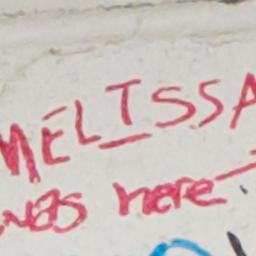 MELISSA
was here